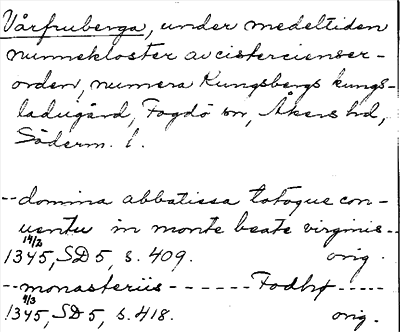 Vårfruberga, under medeltiden
nunnekloster av cistercienser-
orden, numera Kungsbergs kungs-
ladugård, Fogdö sn, Åkers hd,
Söderm. l.
--domina abbatissa totoque con-
uentu in monte beate virginis--
14/2
1345, SD 5, s. 409. orig.
--monasteriis------Fodhø----
4/3
1345, SD 5, s. 418. orig.